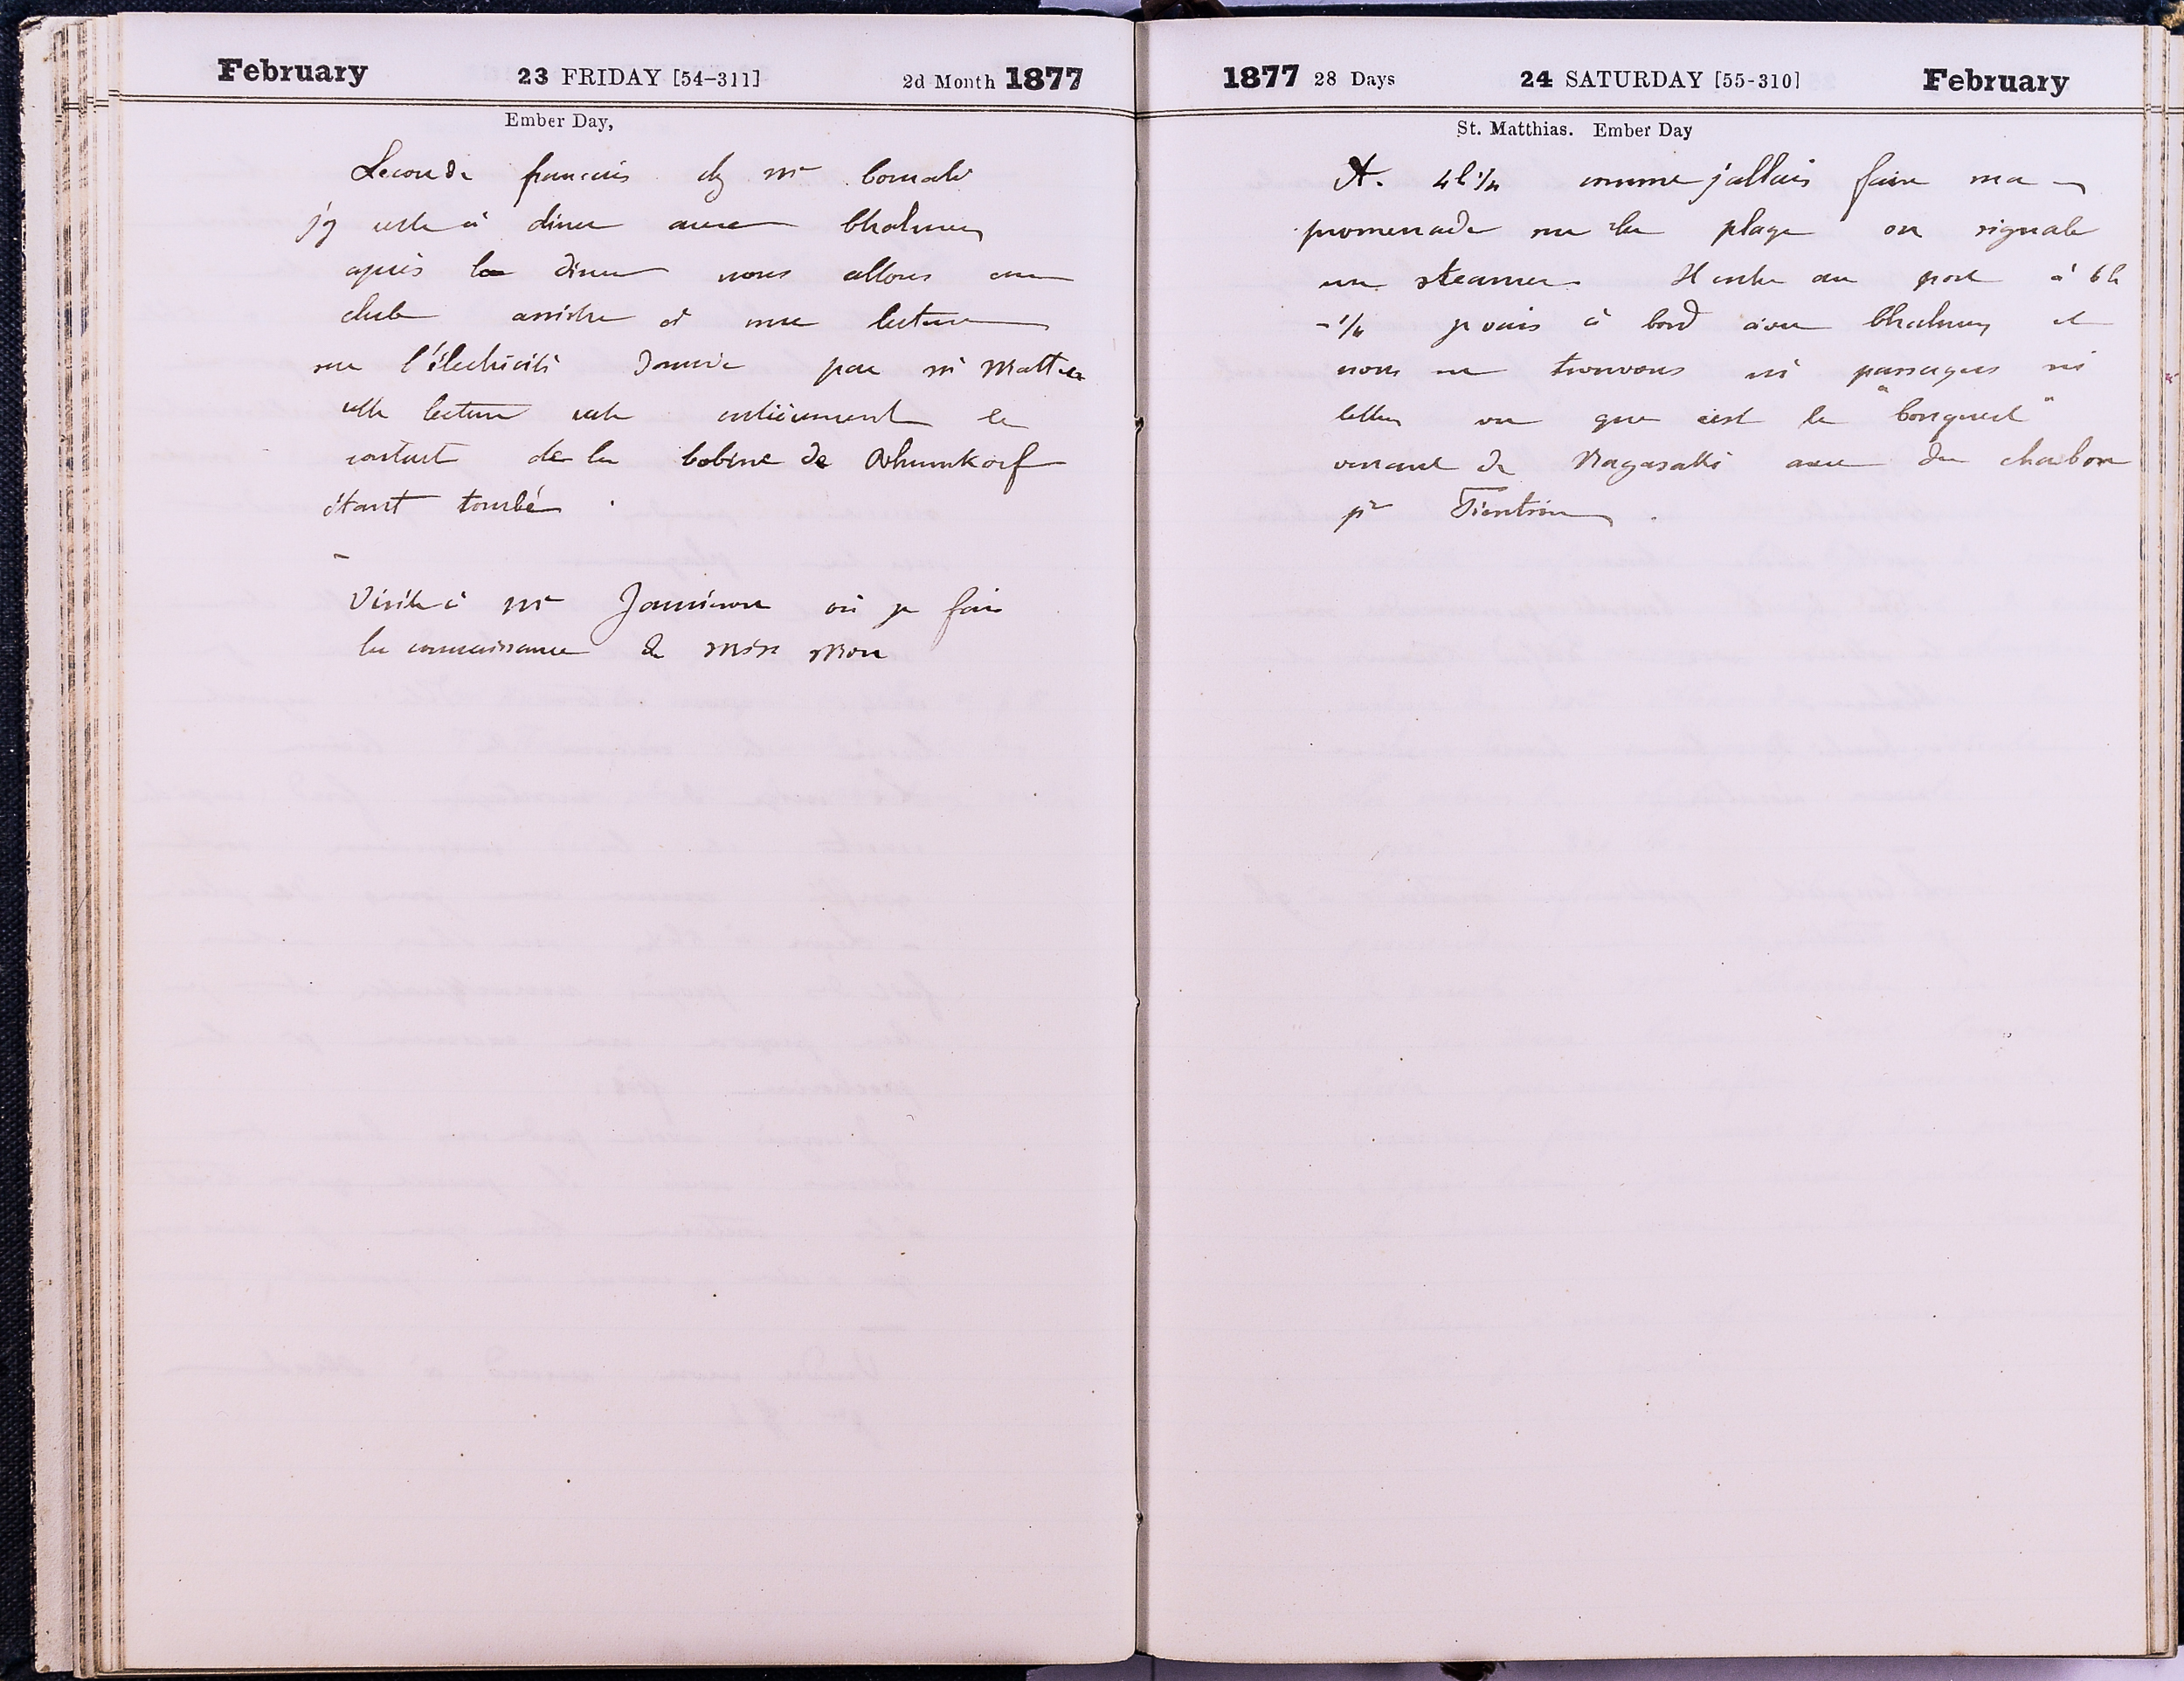 February 23 FRIDAY [54-311] 2d Month 1877
Ember Day,
Lecon de francais chz mr
j'y reste à diner avec
après le diner nous allons au
club assister à une lecture
sur l'électricité donnée par mr
cette lecture rate entièrement le
contact de la bobine de Rhumkorf
étant tombé .
-
Visite à mr Jamieson où je fais
la connaissance de miss
1877 28 Days 24 SATURDAY [55-310] February
St. Matthias. Ember Day
A. 4h 1/4 comme j'allais faire ma
promenade sur la plage on signale
un steamer. Il entre au port à 6h
-1/4 je vais à bord avec et
nous ne trouvons ni passagers ni
lettres vu que c'est le "Conquest"
venant de Nagasaki avec du charbon
pr Tientsin .